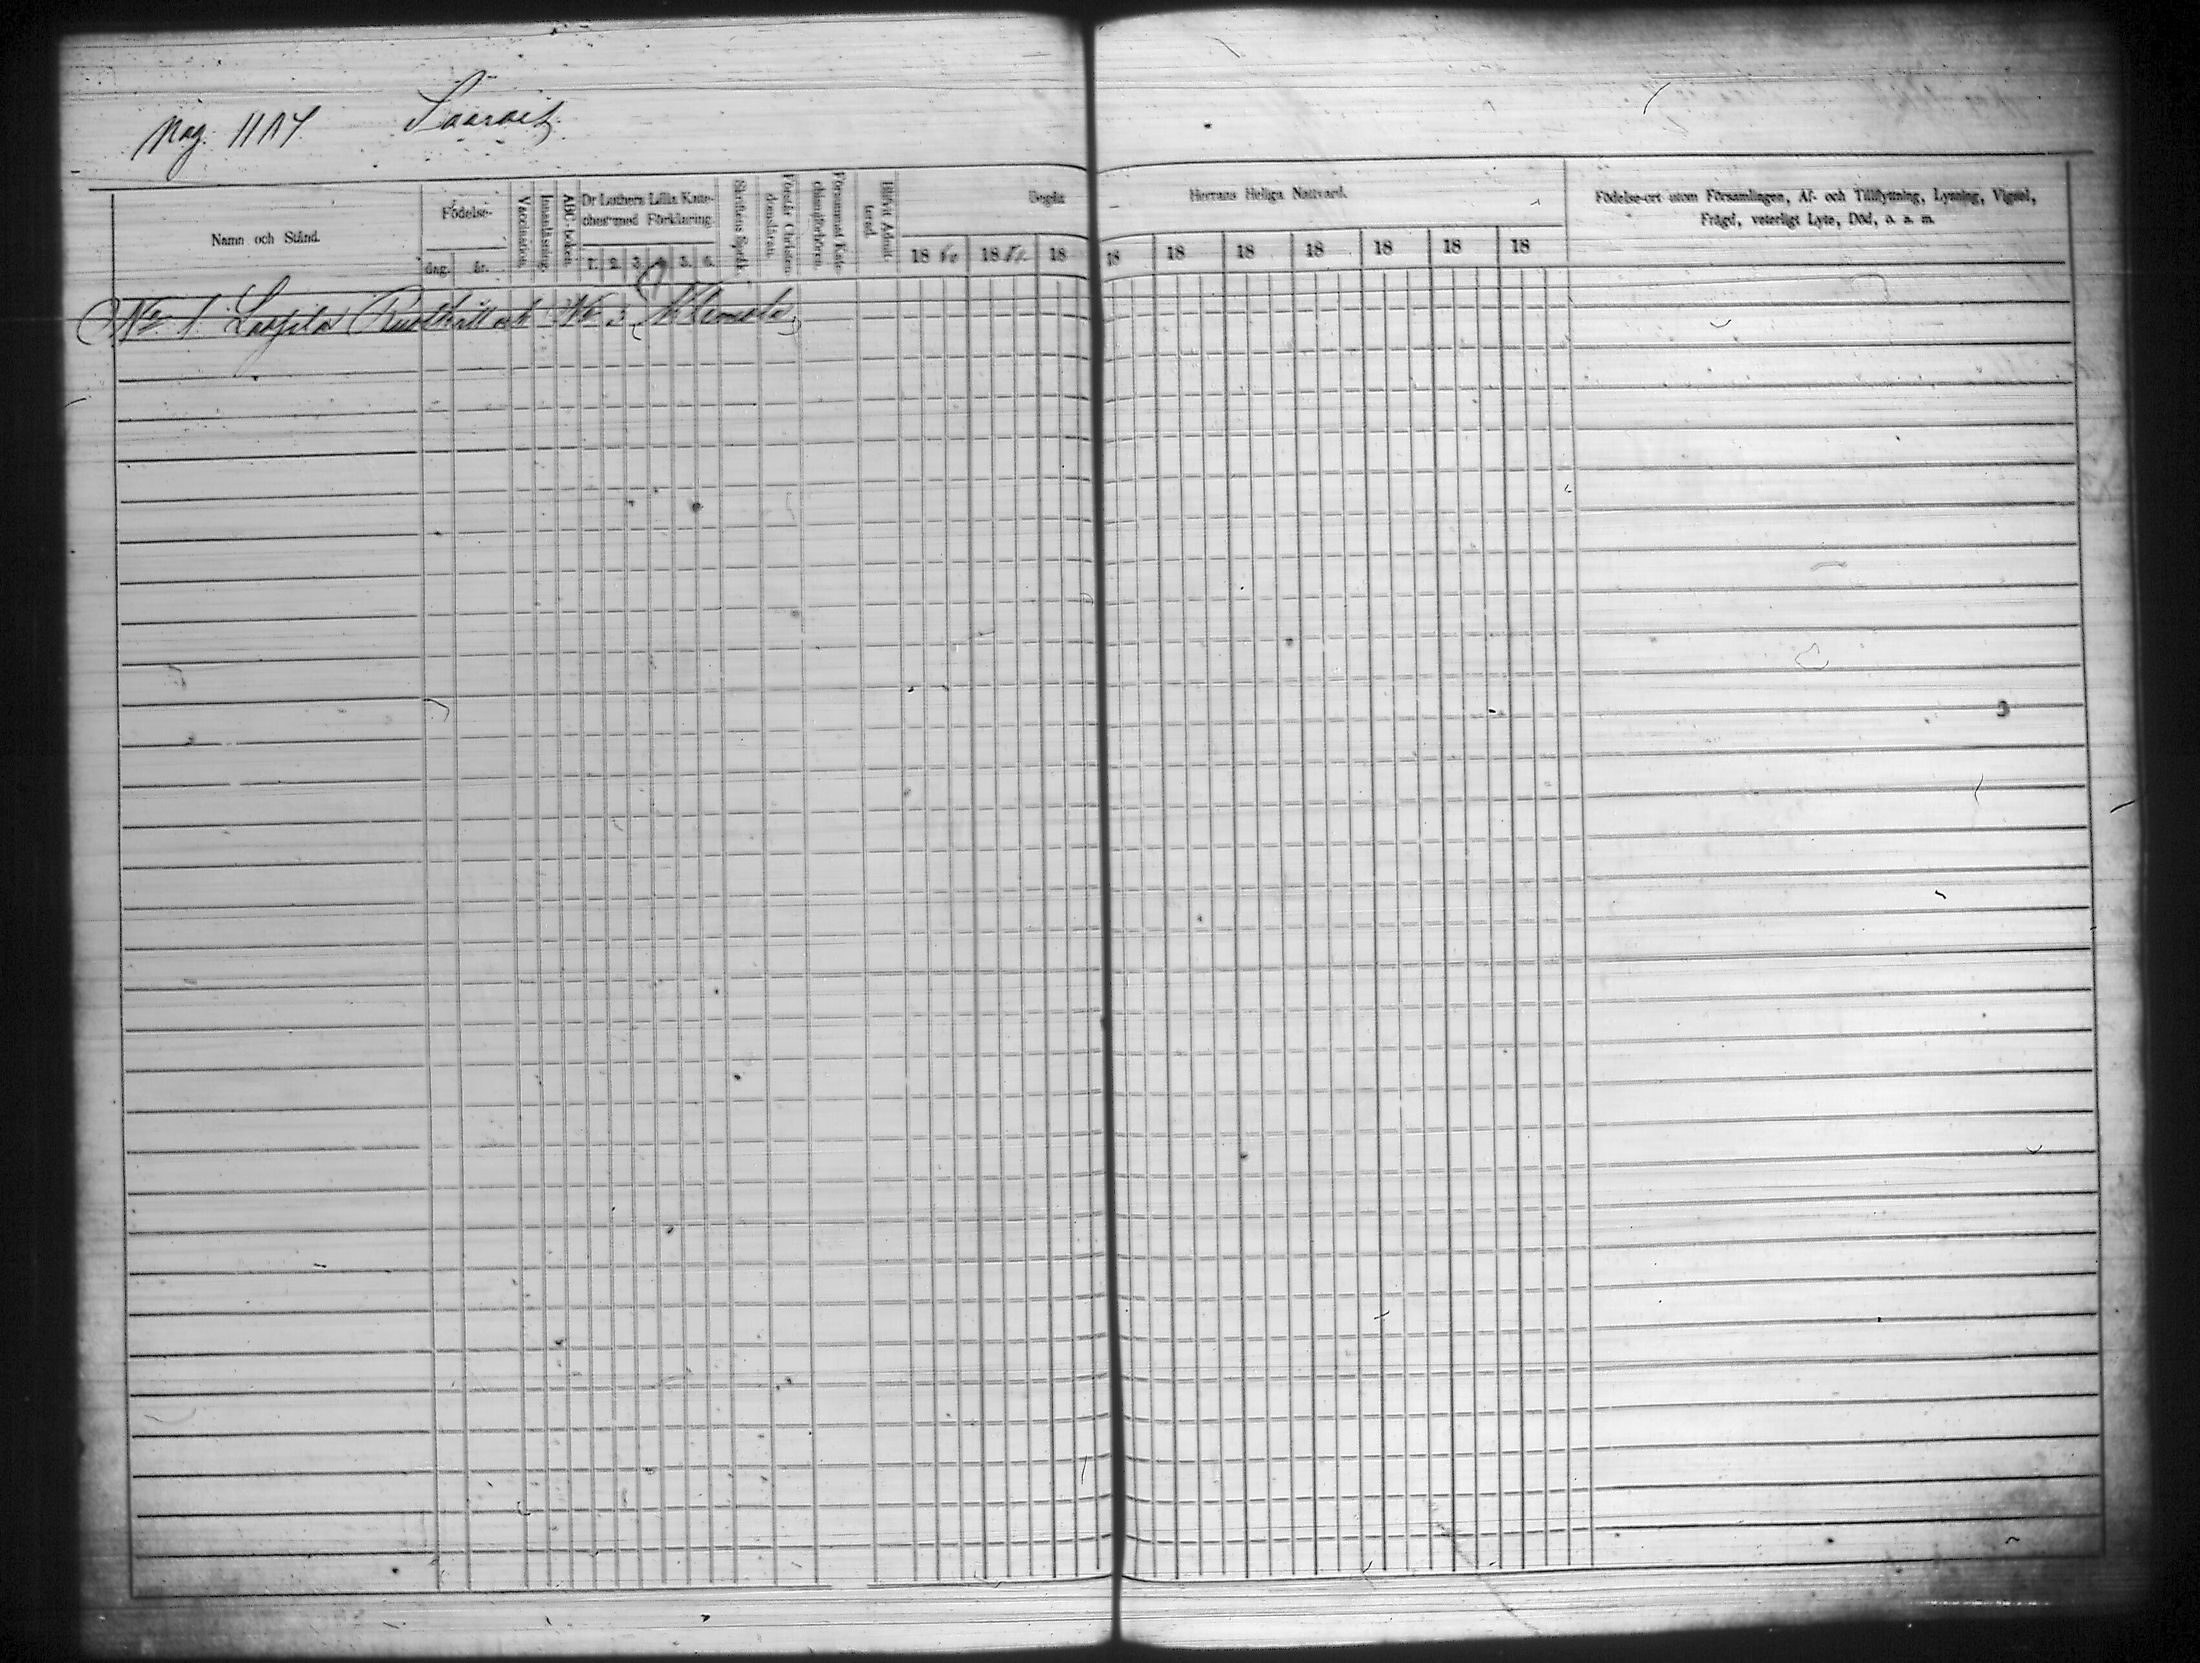 pag. 1114
Namn och Stånd.
Födelse-
dag.
år.
Vaccination.
Innanläsning.
ABC-boken.
Dr Luthers Lilla Kate-
ches med Förklaring.
1. 2. 3. 4. 5. 6.
Skriftens Språk.
Förstår Christen-
domsläran.
Försummat Kate-
chismiförhören.
Blifvit Admit-
terad.
Begått Herrans Heliga Nattvard.
18 80 18 81. 18 18 18 18 18 18 18 18
Födelse-ort utom Församlingen, Af- och Tillflyttning, Lysning, Vigsel,
Frägd, veterligt Lyte, Död, o. s. m.
No 1 Laipila Rusthåll och No 3